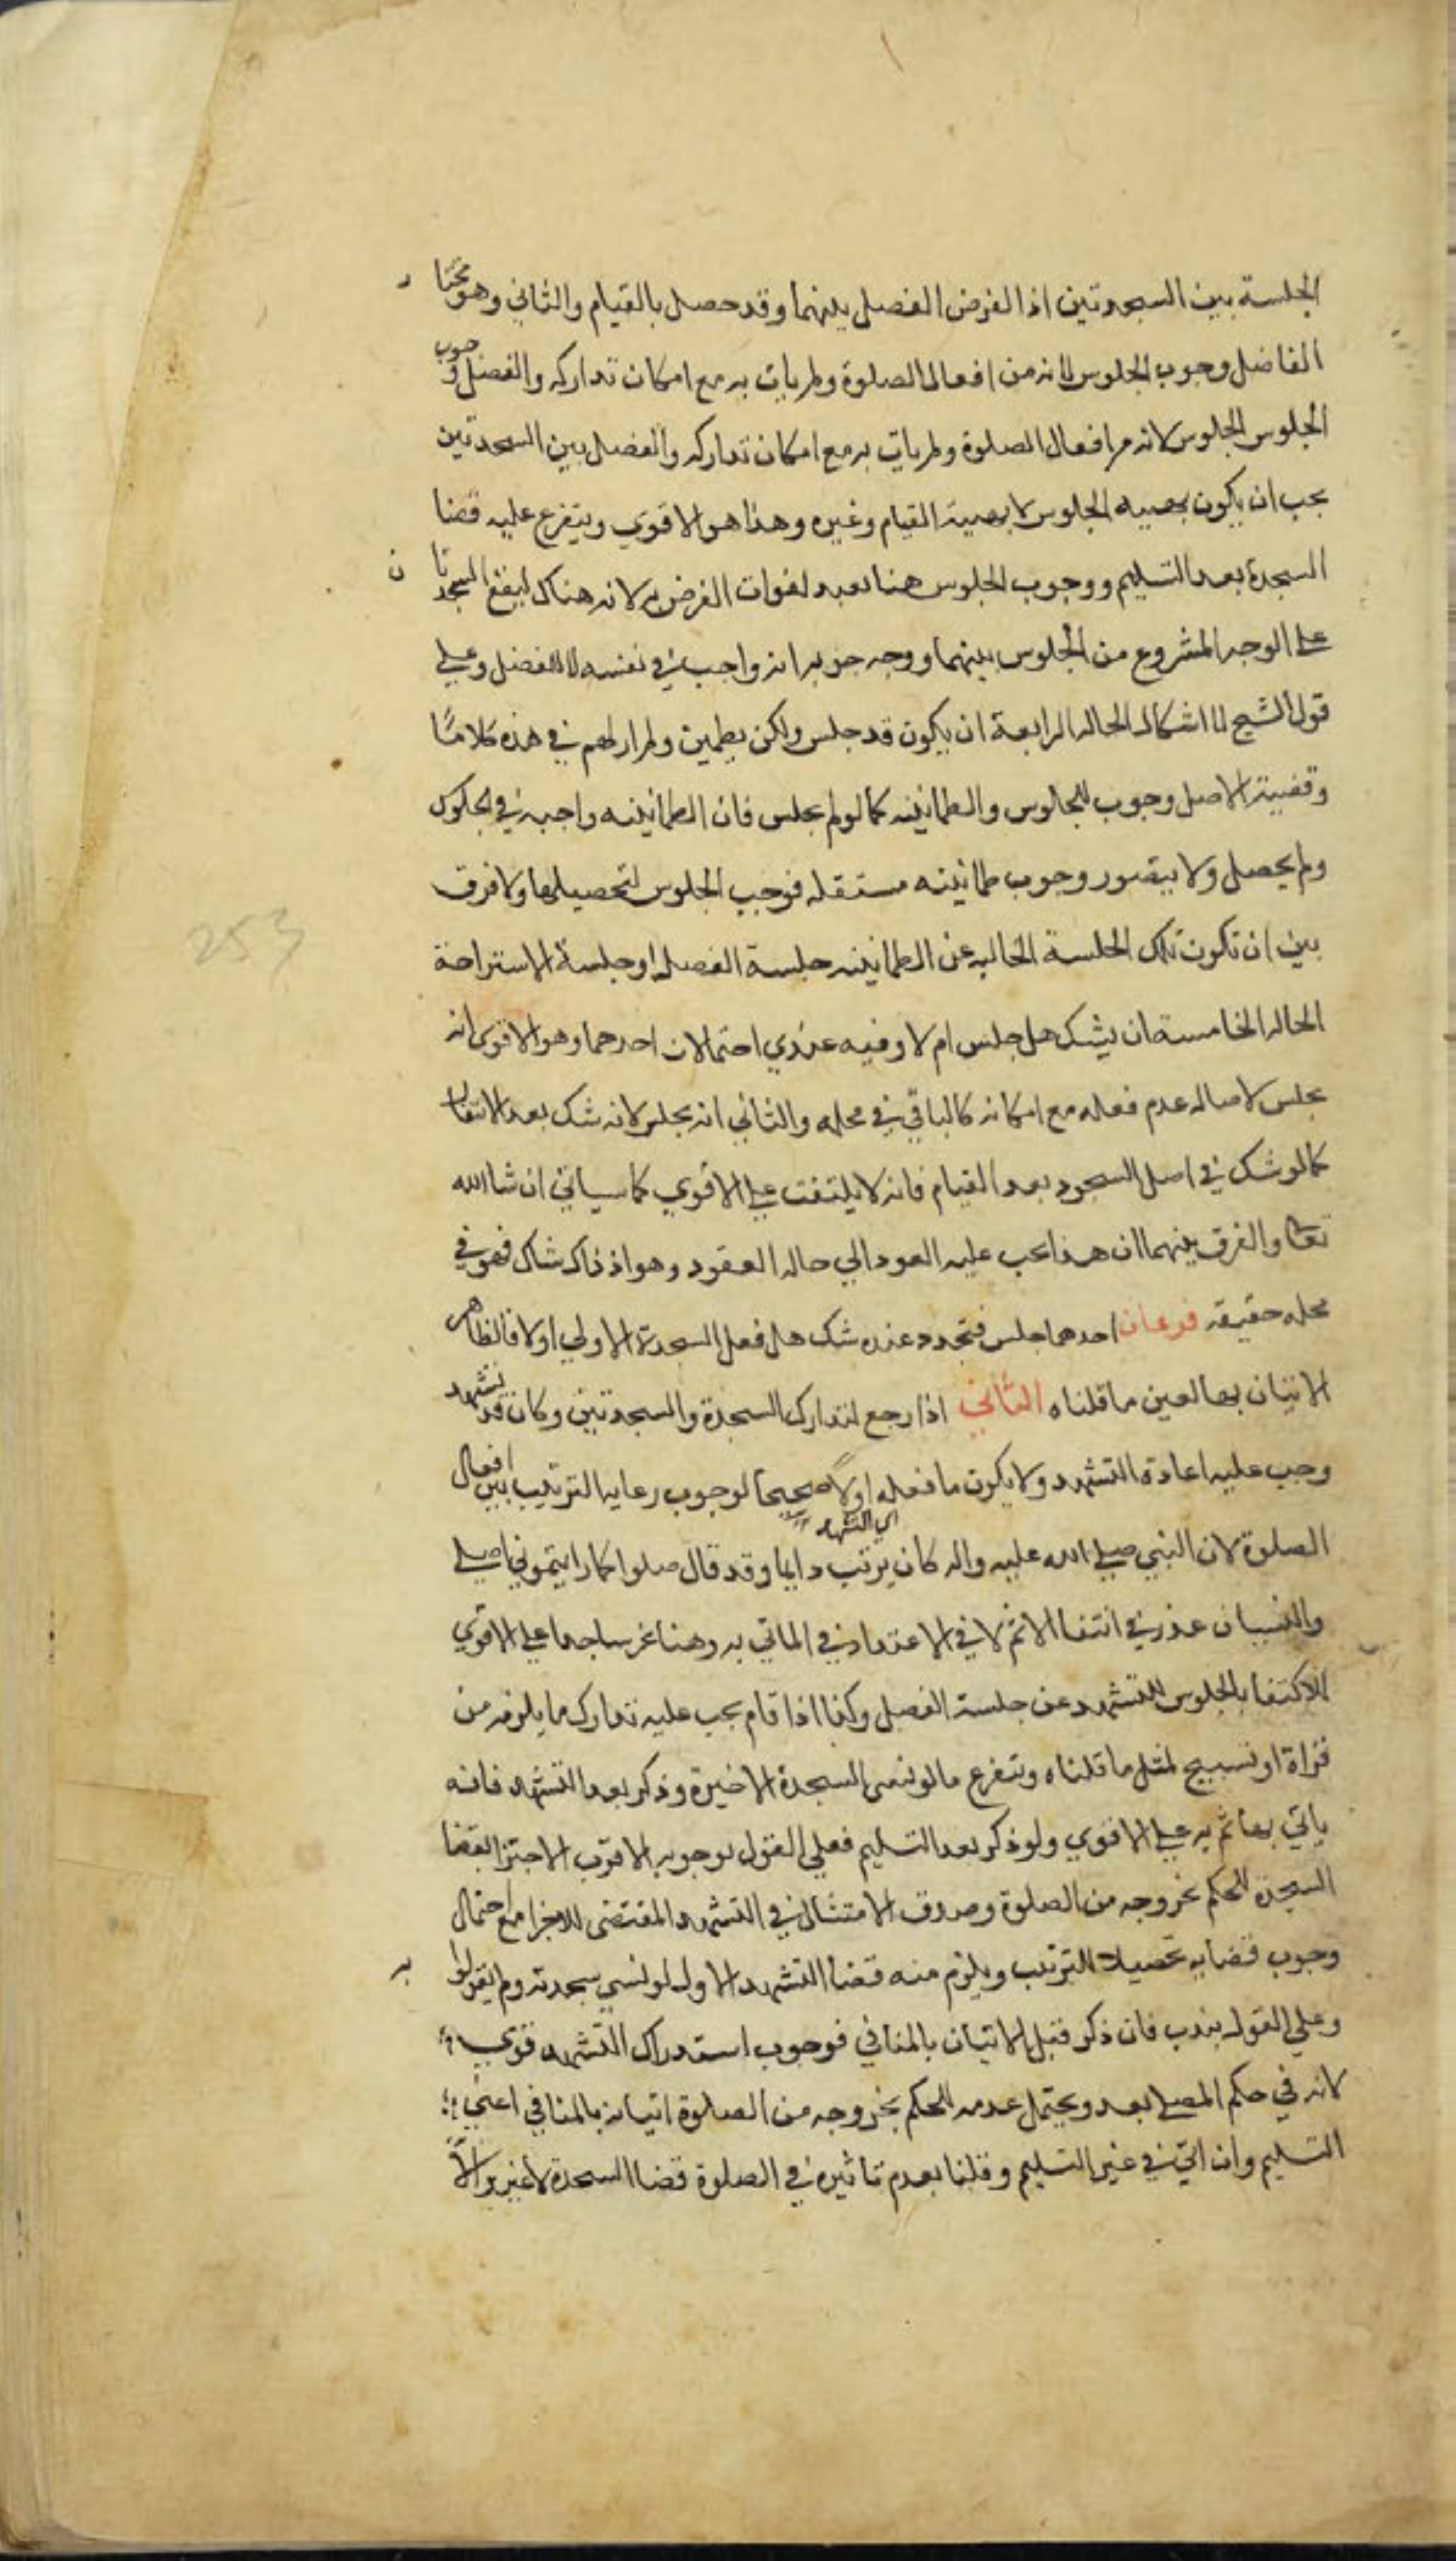 الجلسة بين السجدتين اذ الغرض الفصل بينهما وقد حصل بالقيام والثاني وهو مختار
الفاضل وجوب الجلوس لانه من افعال الصلوة ولم يات به مع امكان تداركه والفصل وجوب
الجلوس الجلوس لانه من افعال الصلوة ولم يات به مع امكان تداركه والفصل بين السجدتين
يجب ان يكون بهيية الجلوس لا بهيية القيام وغيره وهذا هو الاقوي ويتفرع عليه قضا
السجدة بعد التسليم ووجوب الجلوس هنا بعيد لفوات الغرض به لانه هناك ليقع السجدتان
علي الوجه المشروع من الجلوس بينهما ووجه جوبه انه واجب في نفسه لا للفصل وعلي
قول الشيخ لا اشكال الحاله الرابعة ان يكون قد جلس ولكن يطمين ولم ار لهم في هذه كلامًا
وقضية الاصل وجوب الجلوس والطمانينه كما لو لم يجلس فان الطمانينه واجبه في الجلوس
ولم يحصل ولا يتصور وجوب طمانينه مستقله فوجب الجلوس لتحصيلها ولا فرق
بين ان تكون تلك الجلسة الخاليه عن الطمانينه جلسة الفصل او جلسة الاستراحة
الحاله الخامسة ان يشك هل جلس ام لا وفيه عندي احتمالان احدهما وهو الاقوي انه
يجلس لاصاله عدم فعله مع امكانه كالباقي في محله والثاني انه يجلس لانه شك بعد الانتقال
كما لو شك في اصل السجود بعد القيام فانه لا يلتفت علي الاقوي كما سياتي ان شا الله
تعالى والفرق بينهما ان هذا يجب عليه العود الي حاله العقود وهو اذ ذاك شاك فهو في
محله حقيقه فرعان احدهما جلس فتجدد عنده شك هل فعل السجدة الاولي اولا فالظاهر
الاتيان بها لعين ما قلناه الثاني اذا رجع لتدارك السجدة والسجدتين وكان قد تشهد
وجب عليه اعادة التشهد ولا يكون ما فعله اولًا صحيحا لوجوب رعايه الترتيب بين افعال
الصلوة لان النبي صلي الله عليه واله كان يرتب دايما وقد قال صلوا كما رايتموني اصلي
والنسيان عذر في انتفا الاثم لا في الاعتداد في الماتي به وهنا علي الاقوي
الاكتفا بالجلوس للتشهد عن جلسة الفصل وكذا اذا قام يجب عليه تدارك ما يلزمه من
قراة او تسبيح لمثل ما قلناه ويتفرع ما لو نسي السجدة الاخيرة وذكر بعد التشهد فانه
ياتي بها ثم به علي الاقوي ولو ذكر بعد التسليم فعلي القول بوجوبه الاقرب الاجتزا بقضا
السجدة للحكم بخروجه من الصلوة وصدق الامتثال في التشهد المقتضي للاجزا مع احتمال
وجوب قضايه تحصيلا للترتيب ويلزم منه قضا التشهد الاول لو نسي سجدته ولم يقولوا به
وعلي القول بندبه فان ذكر قبل الاتيان بالمنافي فوجوب استدراك التشهد قوي
لانه في حكم المصلي بعد ويحتمل عدمه للحكم بخروجه من الصلوة اتيانه بالمنافي اعني
التسليم وان اتي في غير التسليم وقلنا بعدم تاثيره في الصلوة قضا السجدة لا غير والا
253